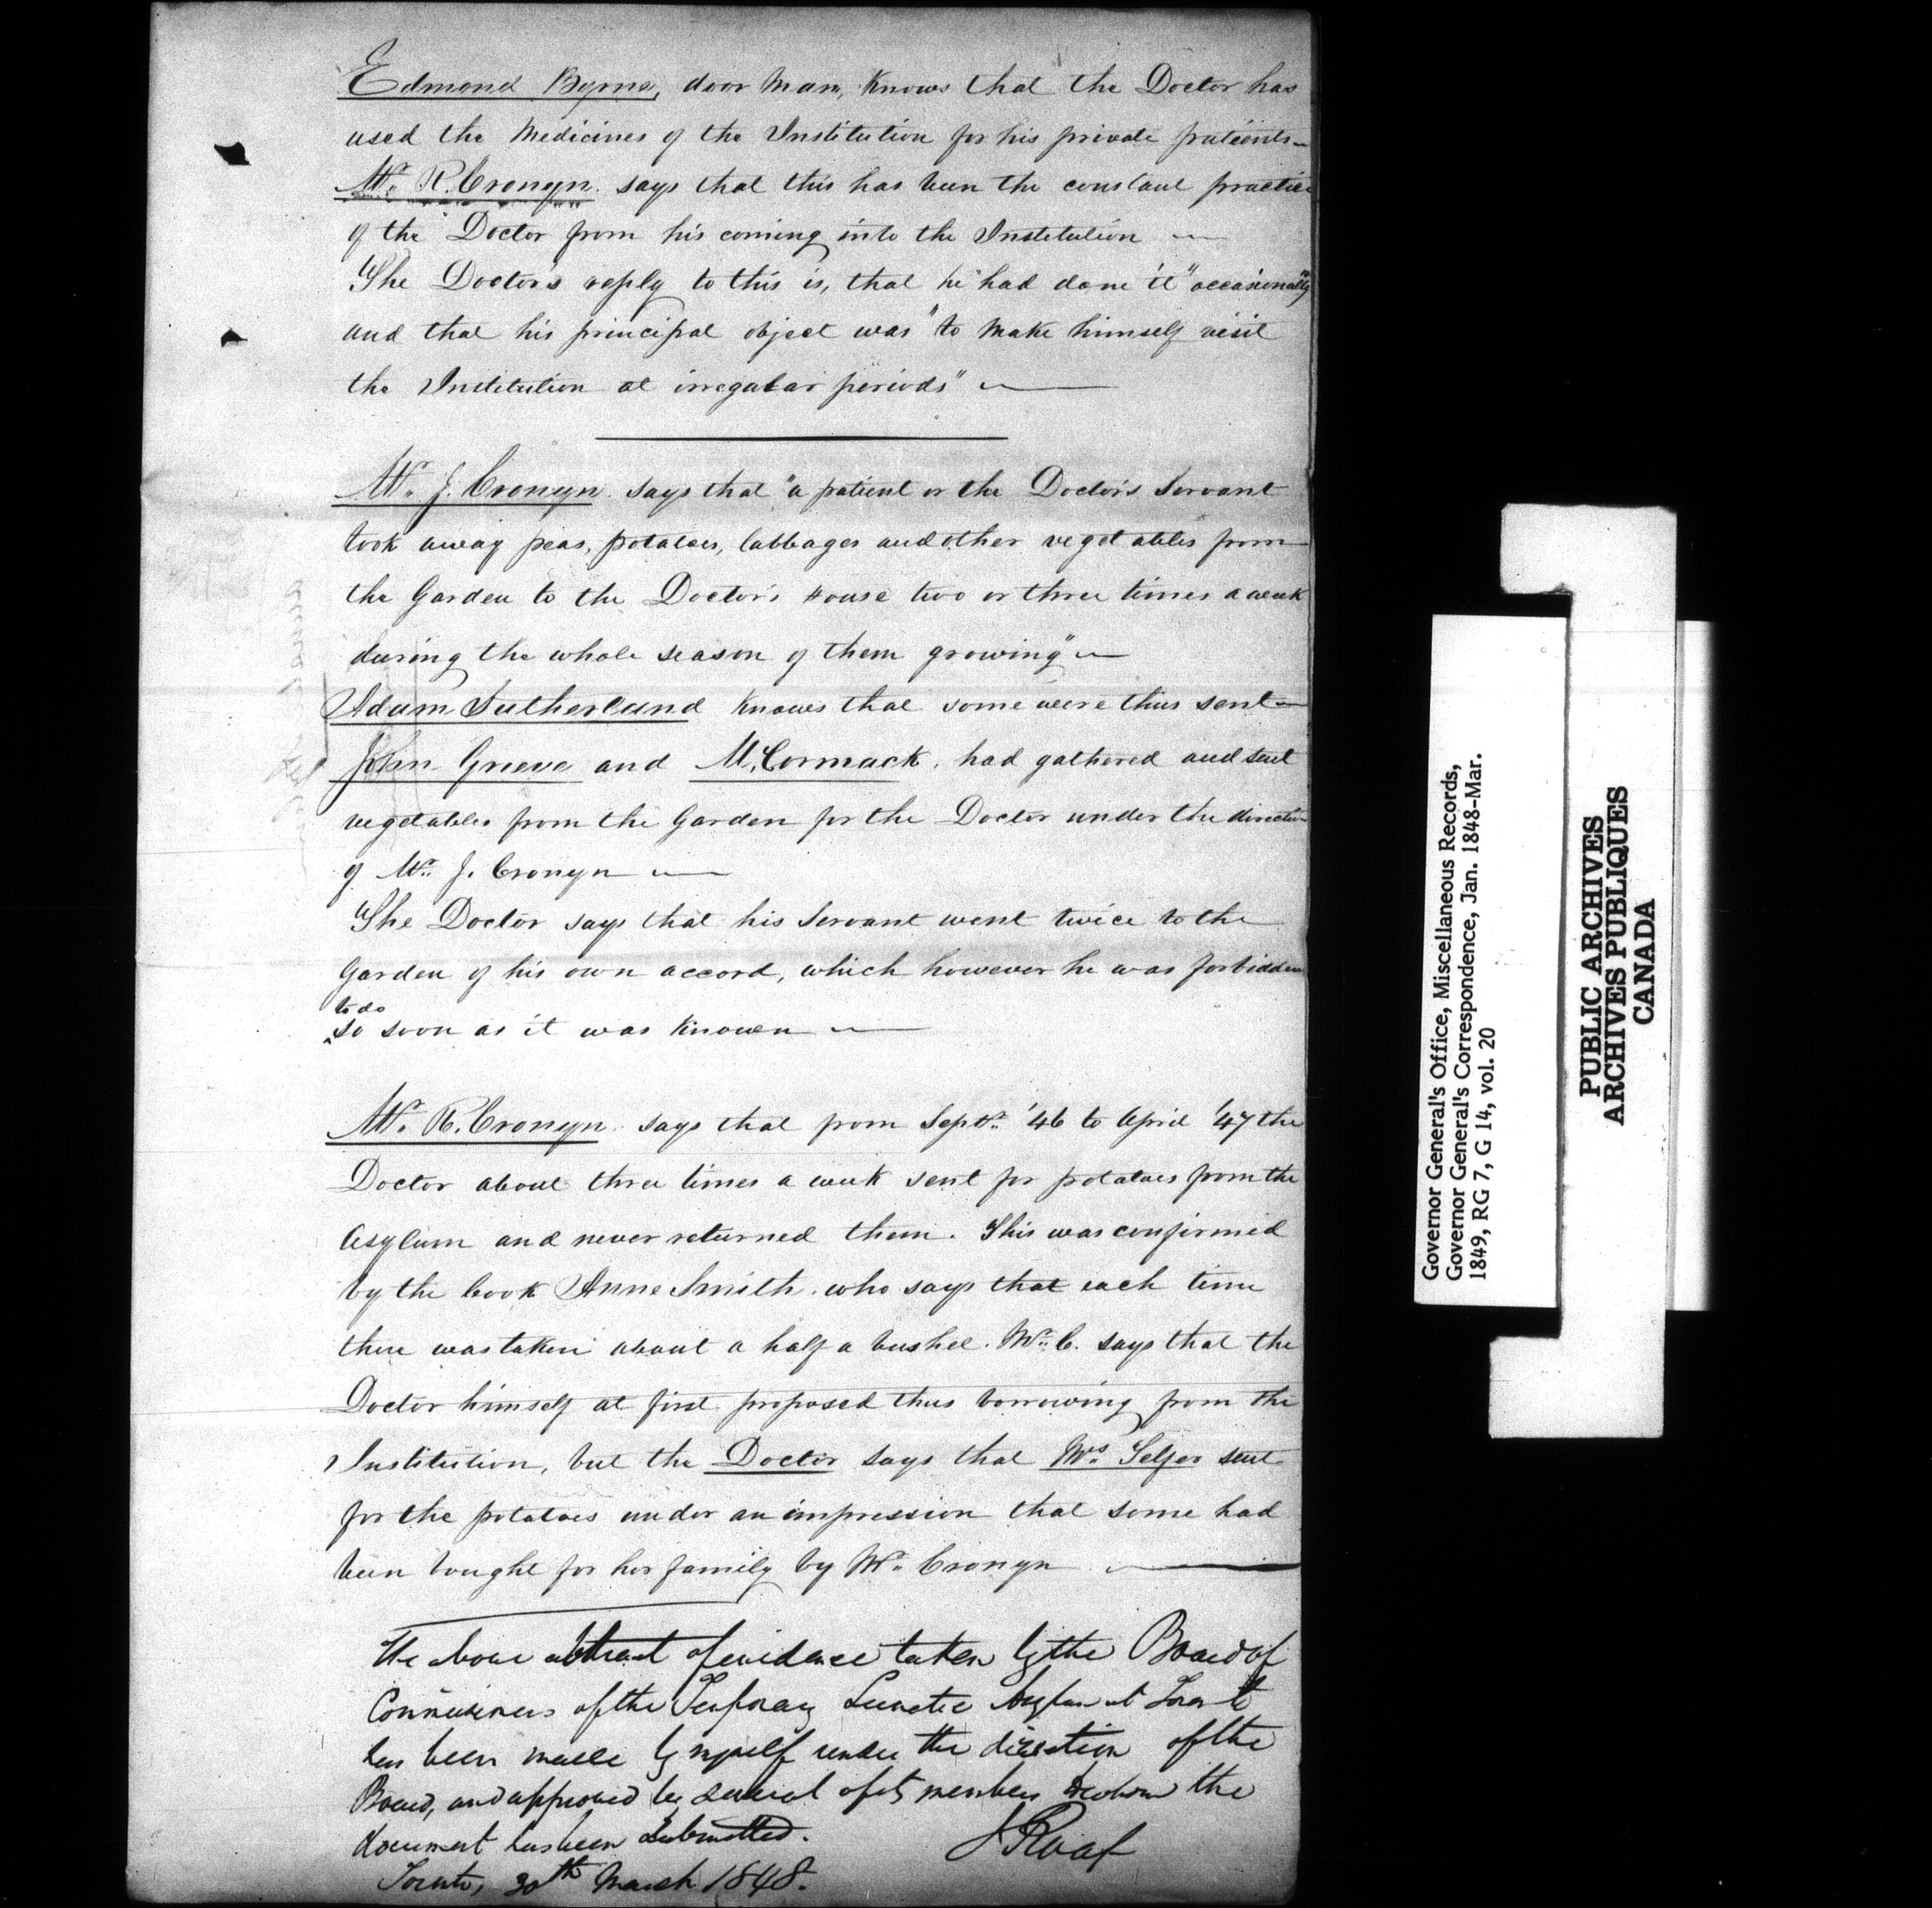 Edmond Byrne, door man, knows that the Doctor has
used the Medicines of the Institution for his private patients—
Mr. R. Cronyn says that this has been the constant practice
of the Doctor from his coming into the Institution —
The Doctor's reply to this is, that he had done it "occasionally"
and that his principal object was "to make himself visit
the Institution at irregular periods" —
Mr. J. Cronyn says that "a patient or the Doctor's Servant
took away peas, potatoes, Cabbages and other vegetables from
the Garden to the Doctor's House two or three times a week
during the whole season of them growing" —
Adam Sutherland knows that some were thus sent —
John Grieve and McCormack, had gathered and sent
vegetables from the Garden for the Doctor under the direction
of Mr. J. Cronyn —
The Doctor says that his Servant went twice to the
Garden of his own accord, which however he was forbidden
to do
so soon as it was known —
Mr. R. Cronyn says that from Septr. '46 to April '47 the
Doctor about three times a week sent for potatoes from the
Asylum and never returned them. This was confirmed
by the Cook Anne Smith who says that each time
there was taken about a half a bushel. Mr. C. says that the
Doctor himself at first proposed thus borrowing from the
Institution, but the Doctor says that Mrs. Telfer sent
for the potatoes under an impression that some had
been bought for her family by Mr. Cronyn —
The above abstract of evidence taken by the Board of
Commissioners of the Temporary Lunatic Asylum at Toronto
has been made by myself under the direction of the
Board, and approved by several of its members to whom the
document has been submitted.
J Roaf
Toronto, 30th March 1848.
Governor General's Office, Miscellaneous Records,
Governor General's Correspondence, Jan. 1848-Mar.
1849, RG 7, G 14, vol. 20
PUBLIC ARCHIVES
ARCHIVES PUBLIQUES
CANADA